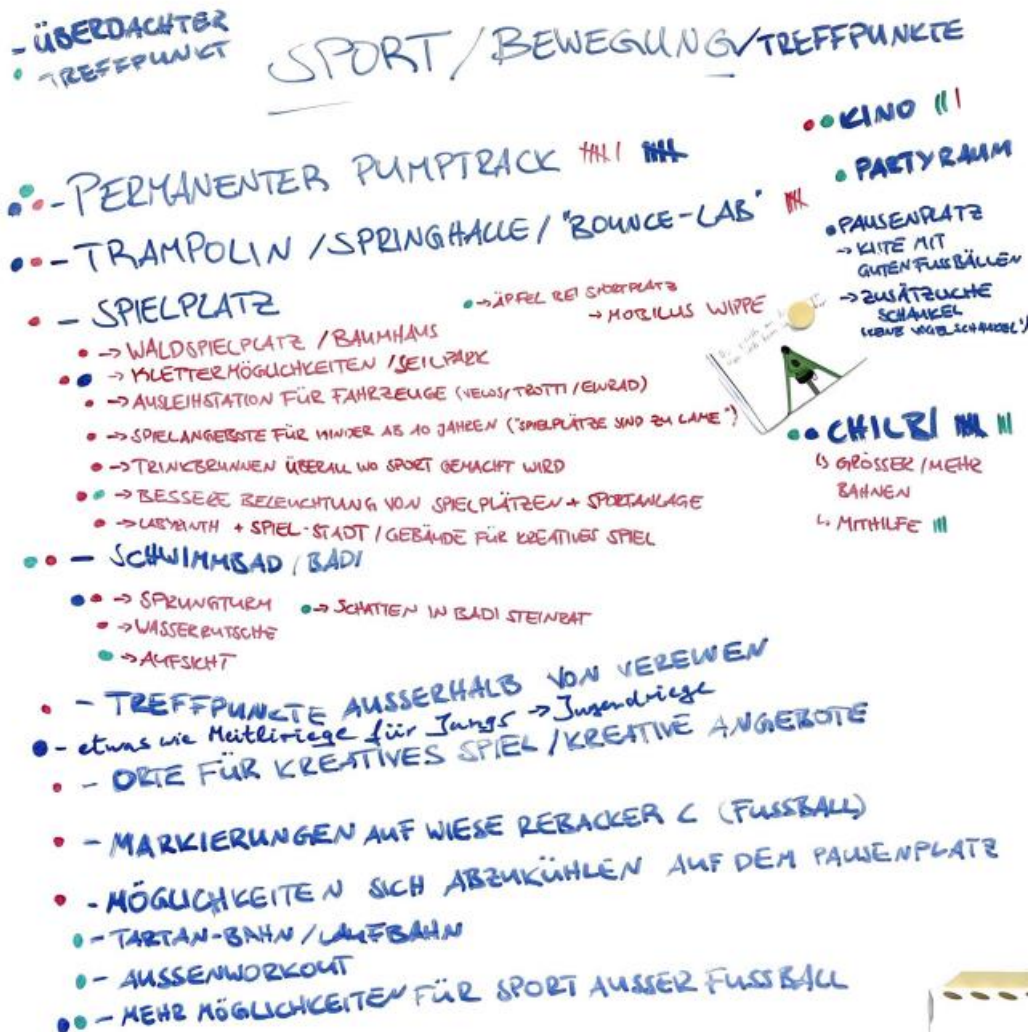 - ÜBERDACHTER
TREFFPUNKT
SPORT / BEWEGUNG/TREFFPUNKTE
- PERMANENTER PUMPTRACK
- TRAMPOLIN / SPRINGHALLE / "BOUNCE-LAB"
- SPIELPLATZ
→ ÄPFEL BEI SPORTPLATZ
→ MOBILUS WIPPE
→ WALDSPIELPLATZ / BAUMHAUS
→ KLETTERMÖGLICHKEITEN / SEILPARK
→ AUSLEIHSTATION FÜR FAHRZEUGE (VELOS/TROTTI/EINRAD)
→ SPIELANGEBOTE FÜR KINDER AB 10 JAHREN ("SPIELPLÄTZE SIND ZU LAME")
→ TRINKBRUNNEN ÜBERALL WO SPORT GEMACHT WIRD
→ BESSERE BELEUCHTUNG VON SPIELPLÄTZEN + SPORTANLAGE
→ LABYRINTH + SPIEL-STADT / GEBÄUDE FÜR KREATIVES SPIEL
- SCHWIMMBAD / BADI
→ SPRUNGTURM
→ SCHATTEN IN BADI STEINRAT
→ WASSERRUTSCHE
→ AUFSICHT
- TREFFPUNKTE AUSSERHALB VON VEREINEN
- etwas wie Meitliriege für Jungs → Jugendriege
- ORTE FÜR KREATIVES SPIEL / KREATIVE ANGEBOTE
- MARKIERUNGEN AUF WIESE REBACKER C (FUSSBALL)
- MÖGLICHKEITEN SICH ABZUKÜHLEN AUF DEM PAUSENPLATZ
- TARTAN-BAHN / LAUFBAHN
- AUSSENWORKOUT
- MEHR MÖGLICHKEITEN FÜR SPORT AUSSER FUSSBALL
KINO
PARTYRAUM
PAUSENPLATZ
→ KISTE MIT
GUTEN FUSSBÄLLEN
→ ZUSÄTZLICHE
SCHAUKEL
(KEINE VOGEL SCHAUKEL!)
CHILBI
↳ GRÖSSER / MEHR
BAHNEN
↳ MITHILFE